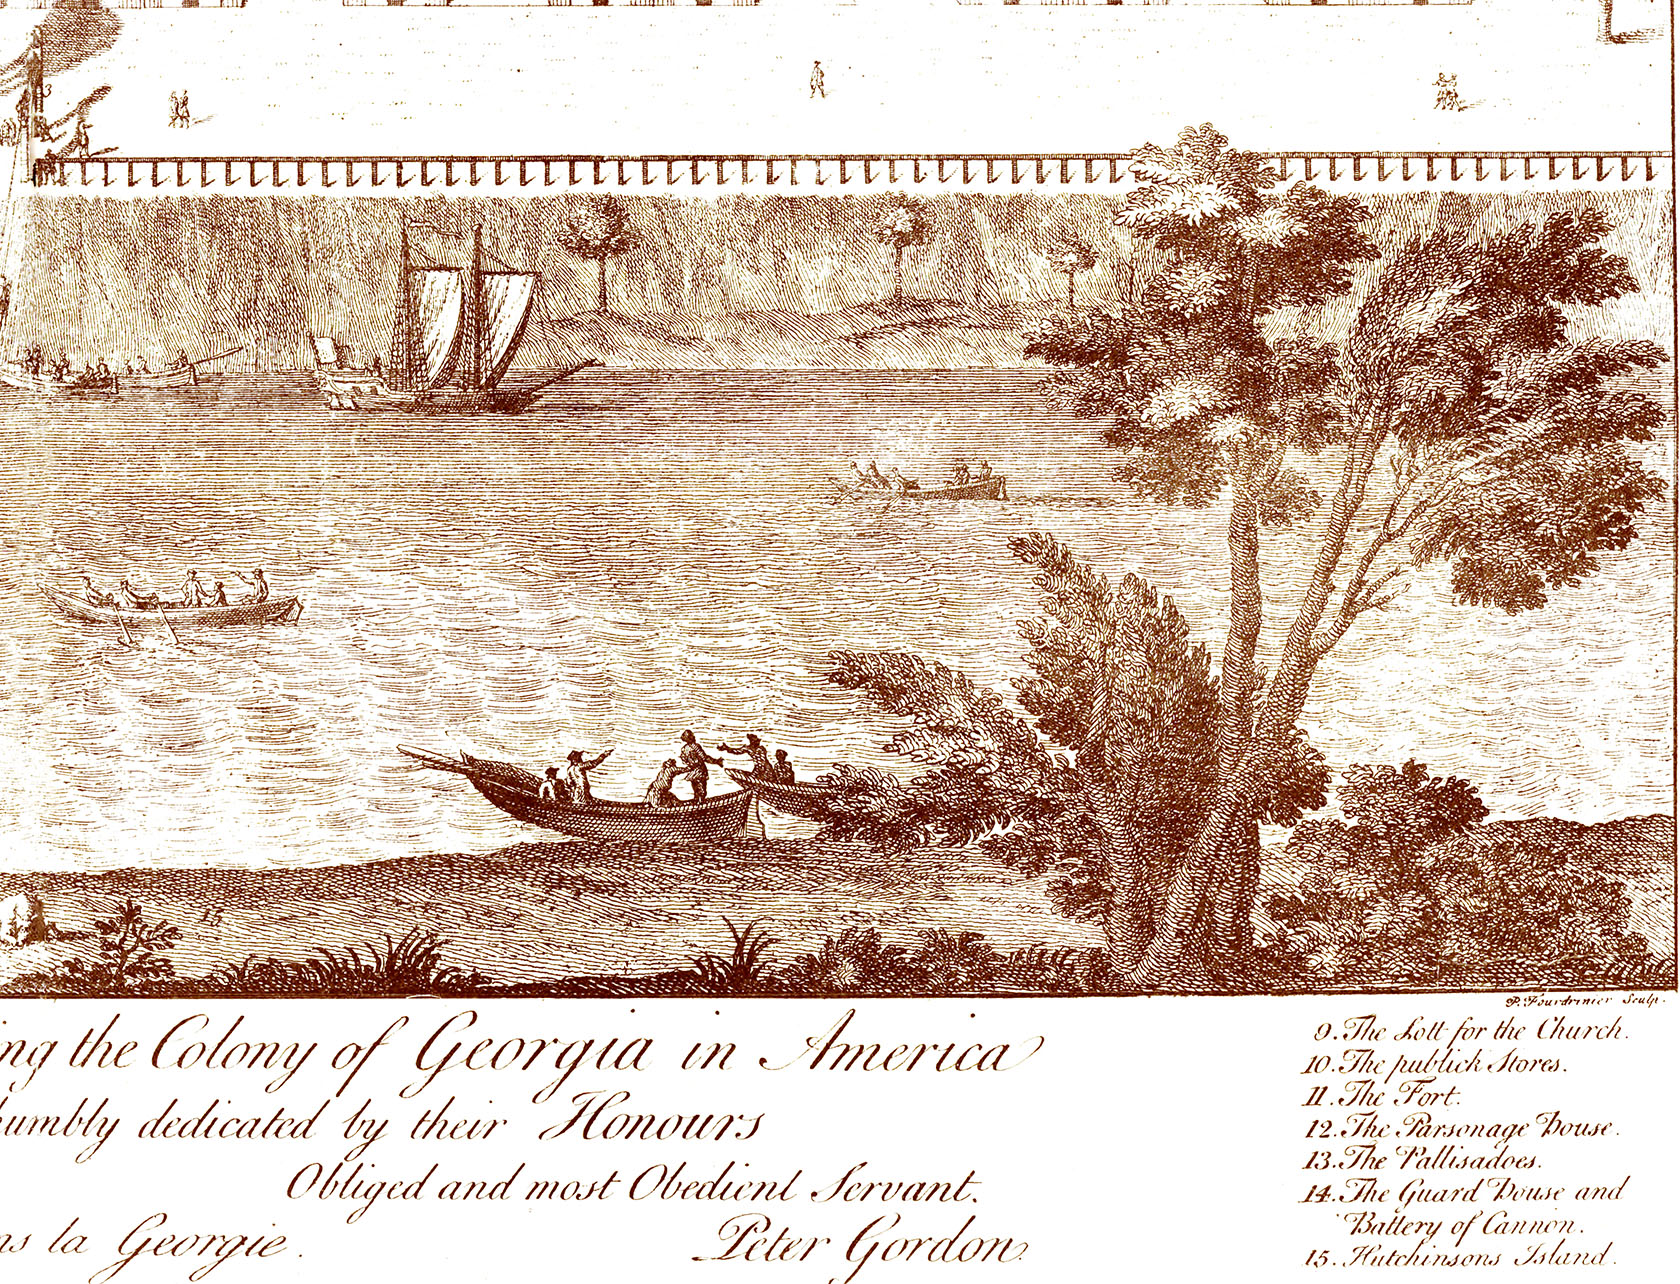 3
15
P. Fourdrinier Sculp.
ing the Colony of Georgia in America
humbly dedicated by their Honours
Obliged and most Obedient Servant.
ns la Georgie.
Peter Gordon
9. The Lott for the Church.
10. The publick Stores.
11. The Fort.
12. The Parsonage House.
13. The Pallisadoes.
14. The Guard House and
Battery of Cannon.
15. Hutchinsons Island.